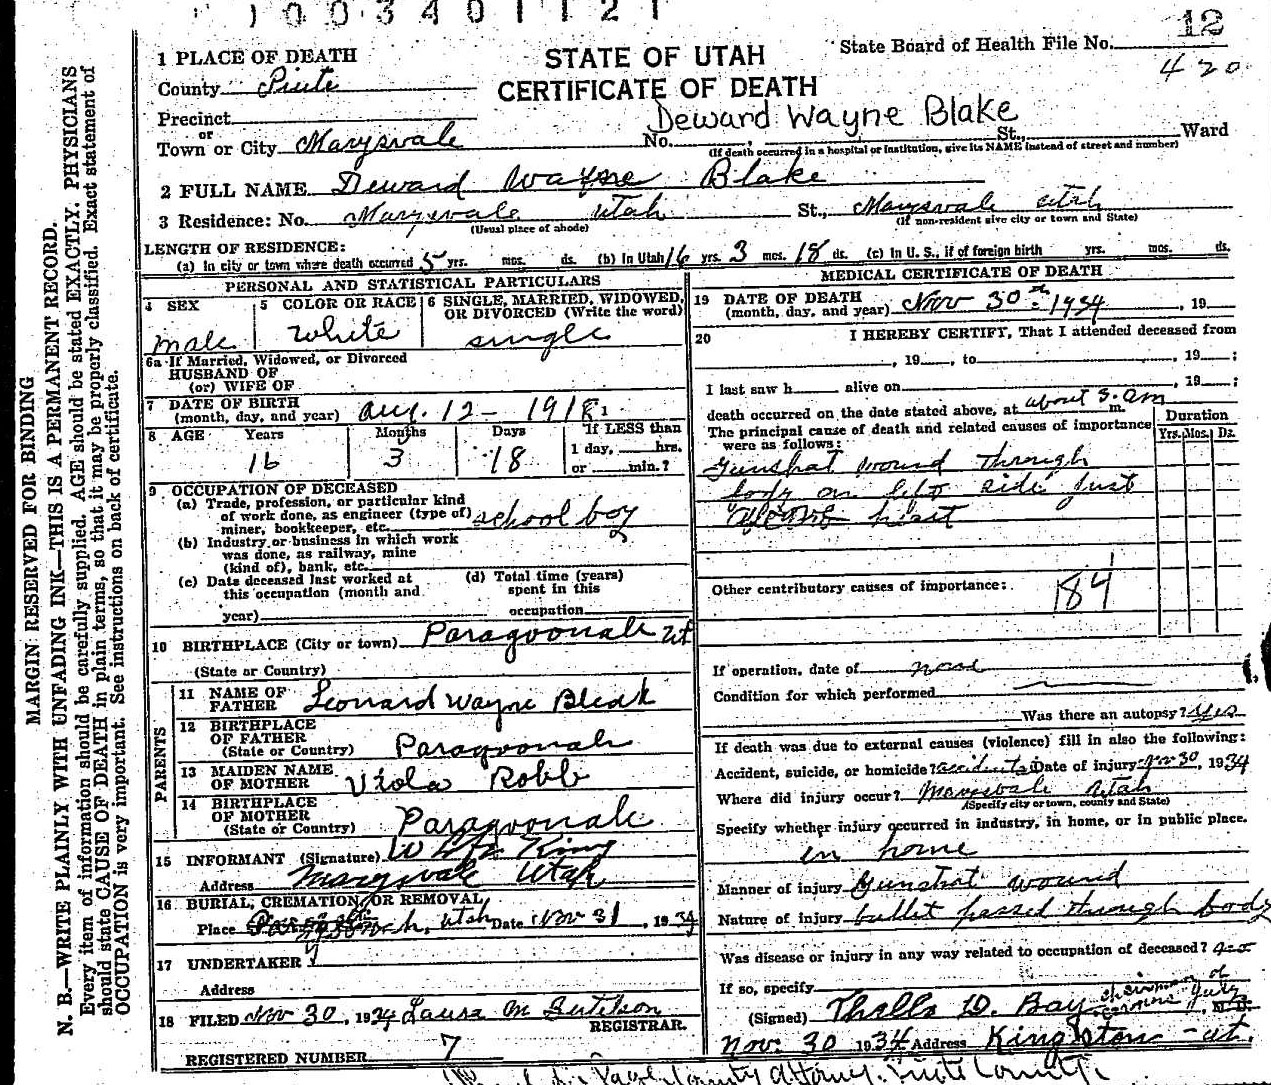 1003401121
12
State Board of Health File No.
420
STATE OF UTAH
CERTIFICATE OF DEATH
1 PLACE OF DEATH
County Piute
Precinct
or
Town or City Marysvale
Deward Wayne Blake
No. St., Ward
(If death occurred in a hospital or institution, give its NAME instead of street and number)
2 FULL NAME Deward Wayne Blake
3 Residence: No. Marysvale Utah St., Marysvale Utah
(Usual place of abode) (If non-resident give city or town and State)
LENGTH OF RESIDENCE:
(a) In city or town where death occurred 5 yrs. mos. ds. (b) In Utah 16 yrs. 3 mos. 18 ds. (c) In U. S., if of foreign birth yrs. mos. ds.
PERSONAL AND STATISTICAL PARTICULARS
4 SEX
male
5 COLOR OR RACE
White
6 SINGLE, MARRIED, WIDOWED,
OR DIVORCED (Write the word)
single
6a If Married, Widowed, or Divorced
HUSBAND OF
(or) WIFE OF
7 DATE OF BIRTH
(month, day, and year) Aug. 12 - 1918
8 AGE Years Months Days If LESS than
16 3 18 1 day, hrs.
or min.?
9 OCCUPATION OF DECEASED
(a) Trade, profession, or particular kind
of work done, as engineer (type of)
miner, bookkeeper, etc. school boy
(b) Industry or business in which work
was done, as railway, mine
(kind of), bank, etc.
(c) Date deceased last worked at
this occupation (month and
year)
(d) Total time (years)
spent in this
occupation
10 BIRTHPLACE (City or town) Paragoonah Ut
(State or Country)
PARENTS
11 NAME OF
FATHER Leonard Wayne Bleak
12 BIRTHPLACE
OF FATHER
(State or Country) Paragoonah
13 MAIDEN NAME
OF MOTHER Viola Robb
14 BIRTHPLACE
OF MOTHER
(State or Country) Paragoonah
15 INFORMANT (Signature) King
Address Marysvale Utah
16 BURIAL, CREMATION, OR REMOVAL
Place Utah Date Nov 31, 1934
17 UNDERTAKER
Address
18 FILED Nov 30, 1934 Laura M
REGISTRAR.
REGISTERED NUMBER 7
MEDICAL CERTIFICATE OF DEATH
19 DATE OF DEATH
(month, day, and year) Nov 30th 1934, 19
20 I HEREBY CERTIFY, That I attended deceased from
, 19 , to , 19 ;
I last saw h alive on , 19 ;
death occurred on the date stated above, at about 3 am m.
The principal cause of death and related causes of importance
were as follows:
Duration
Yrs. Mos. Ds.
Gunshot wound through
body on left side just
above heart
Other contributory causes of importance:
184
If operation, date of none
Condition for which performed
Was there an autopsy? yes
If death was due to external causes (violence) fill in also the following:
Accident, suicide, or homicide? accident Date of injury Nov 30, 1934
Where did injury occur? Marysvale Utah
(Specify city or town, county and State)
Specify whether injury occurred in industry, in home, or in public place.
in home
Manner of injury Gunshot wound
Nature of injury bullet passed through body
Was disease or injury in any way related to occupation of deceased?
If so, specify
(Signed) D. Bay chairman of jury M.D.
Nov. 30 1934 Address Kingston Ut.
County Attorney, Piute County.
MARGIN RESERVED FOR BINDING
N. B.—WRITE PLAINLY WITH UNFADING INK—THIS IS A PERMANENT RECORD.
Every item of information should be carefully supplied. AGE should be stated EXACTLY. PHYSICIANS
should state CAUSE OF DEATH in plain terms, so that it may be properly classified. Exact statement of
OCCUPATION is very important. See instructions on back of certificate.